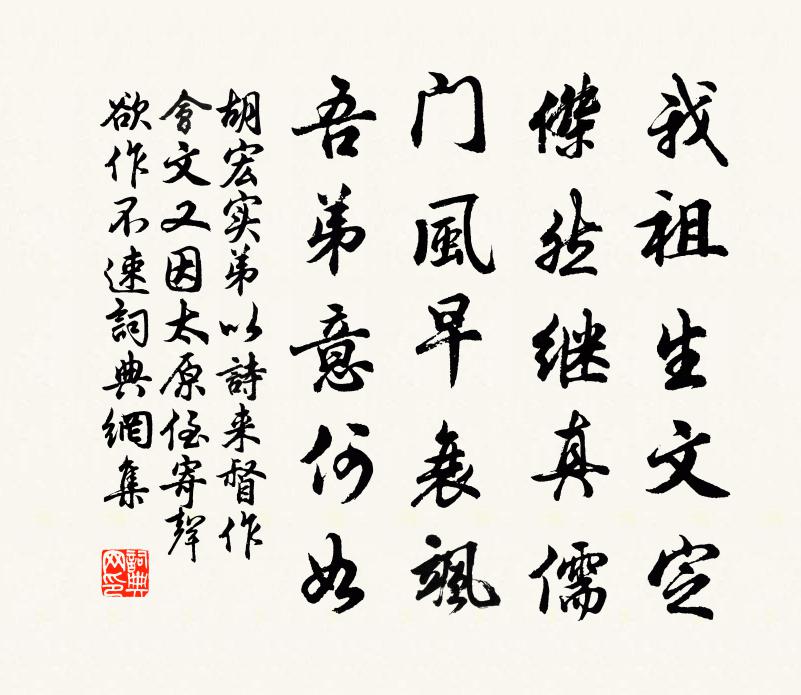 我祖生文定
傑然继真儒
门風早衰飒
吾弟意何如
胡宏实弟以詩来督作
會文又因太原侄寄聲
欲作不速詞典網集
詞典网印